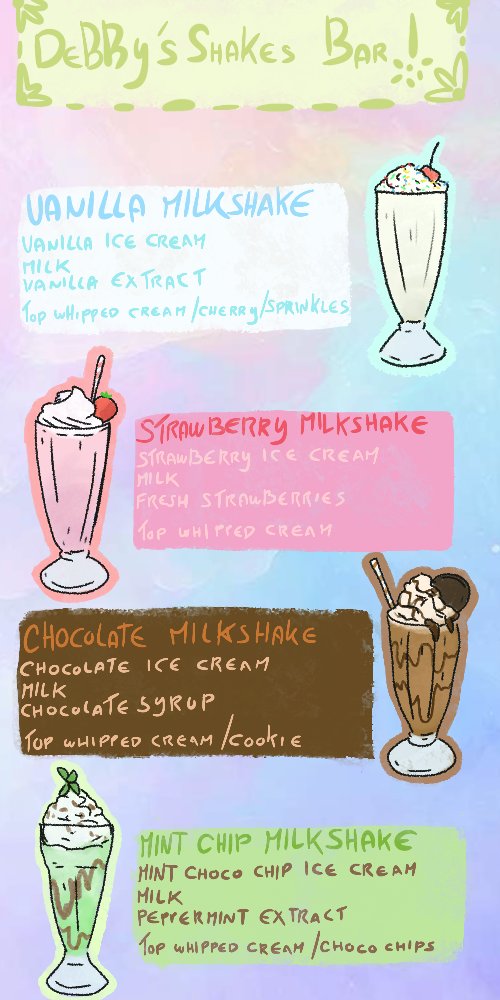 DeBBy's SHAKES BAR!
VANILLA MILKSHAKE
VANILLA ICE CREAM
MILK
VANILLA EXTRACT
TOP WHIPPED CREAM/CHERRY/SPRINKLES
STRAWBERRY MILKSHAKE
STRAWBERRY ICE CREAM
MILK
FRESH STRAWBERRIES
TOP WHIPPED CREAM
CHOCOLATE MILKSHAKE
CHOCOLATE ICE CREAM
MILK
CHOCOLATE SYRUP
TOP WHIPPED CREAM/COOKIE
MINT CHIP MILKSHAKE
MINT CHOCO CHIP ICE CREAM
MILK
PEPPERMINT EXTRACT
TOP WHIPPED CREAM/CHOCO CHIPS